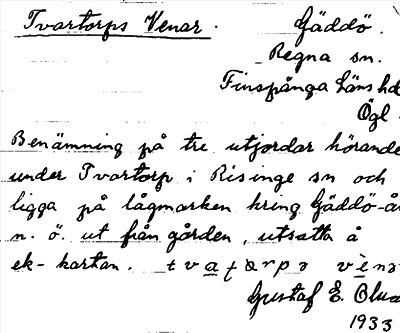 Tvartorps Venar.
Gäddö.
Regna sn.
Finspånga läns hd
Ögl.
Benämning på tre utjordar hörande
under Tvartorp i Risinge sn och
ligga på lågmarken kring Gäddö-ån
n. ö. ut från gården, utsatta å
ek-kartan.
Gustaf E. 
1933